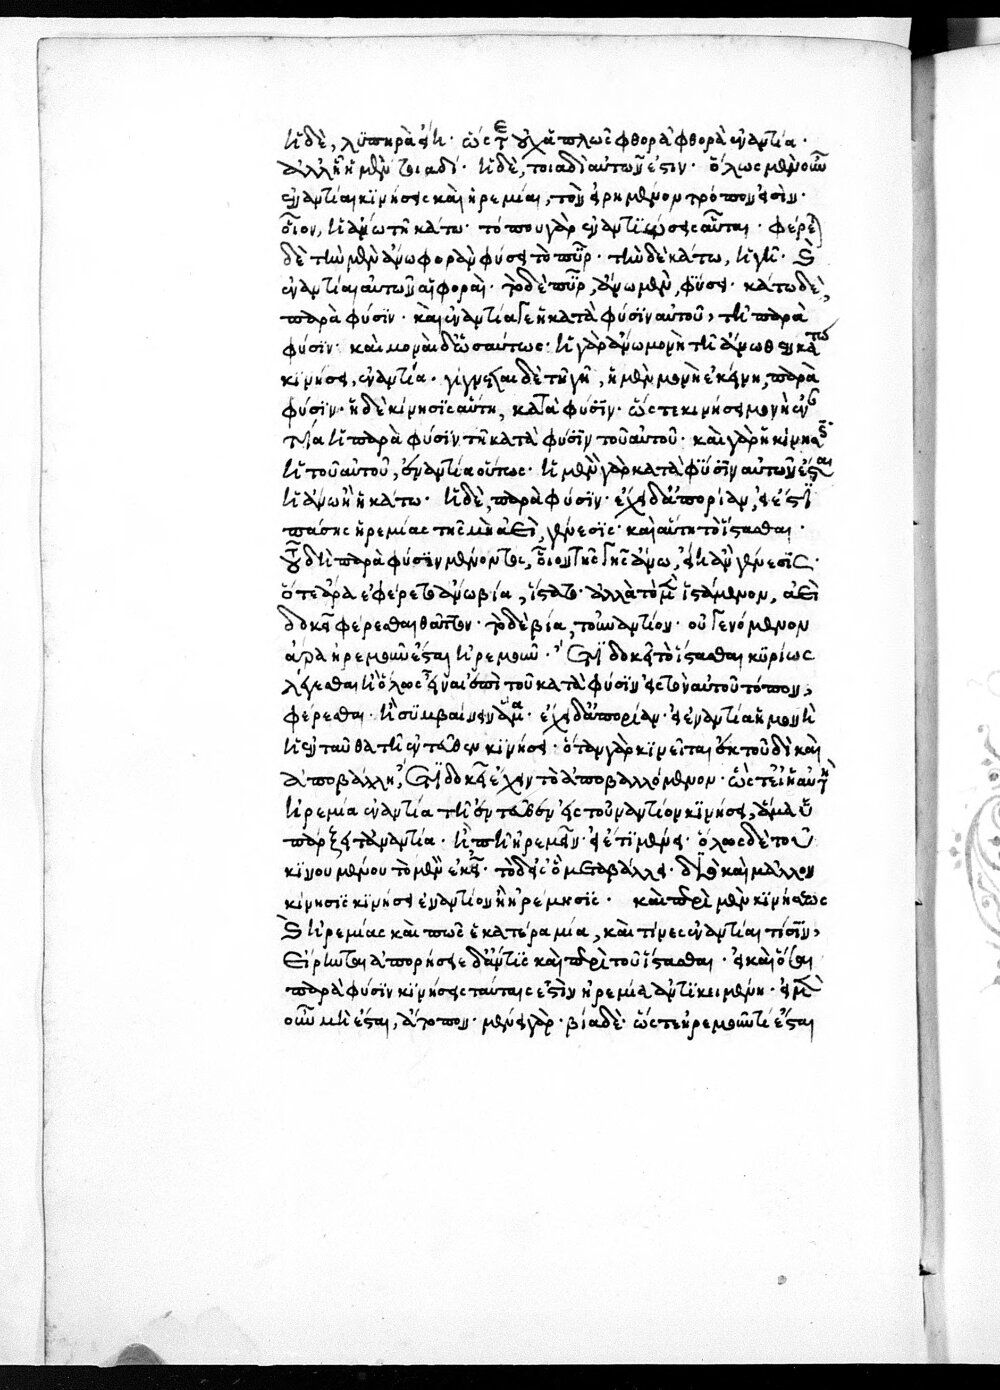 ἡ δὲ, λυπηρά ἐστι· ὥστε οὐχ ἁπλῶς φθορὰ φθορᾷ ἐναντία·
ἀλλ' ᾗ ἡ μὲν τοιαδί· ἡ δὲ, τοιαδὶ αὐτῶν ἐστιν· ὅλως μὲν οὖν
ἐναντίαι κινήσεις καὶ ἠρεμίαι, τὸν εἰρημένον τρόπον εἰσίν·
οἷον, ἡ ἄνω τῇ κάτω· τόπου γὰρ ἐναντιώσεις αὗται· φέρεται
δὲ τὴν μὲν ἄνω φορὰν φύσει τὸ πῦρ· τὴν δὲ κάτω, ἡ γῆ· καὶ
ἐναντίαι αὐτῶν αἱ φοραί· τὸ δὲ πῦρ, ἄνω μὲν, φύσει· κάτω δὲ,
παρὰ φύσιν· καὶ ἐναντία γε ἡ κατὰ φύσιν αὐτοῦ, τῇ παρὰ
φύσιν· καὶ μοναὶ δ' ὡσαύτως· ἡ γὰρ ἄνω μονὴ τῇ ἄνωθεν κάτω
κινήσει, ἐναντία· γίγνεται δὲ τῇ γῇ, ἡ μὲν μονὴ ἐκείνη, παρὰ
φύσιν· ἡ δὲ κίνησις αὕτη, κατὰ φύσιν· ὥστε κινήσει μονὴ ἐν
αντία ἡ παρὰ φύσιν τῇ κατὰ φύσιν τοῦ αὐτοῦ· καὶ γὰρ ἡ κίνησις
ἡ τοῦ αὐτοῦ, ἐναντία οὕτως· ἡ μὲν γὰρ κατὰ φύσιν αὐτῶν ἔσται
ἡ ἄνω ἢ ἡ κάτω· ἡ δὲ, παρὰ φύσιν· ἔχει δ' ἀπορίαν, εἰ ἔστι
πάσης ἠρεμίας τῆς μὴ ἀεὶ, γένεσις· καὶ αὕτη τὸ ἵστασθαι·
τοῦ δὴ παρὰ φύσιν μένοντος, οἷον τῆς γῆς ἄνω, εἴη ἂν γένεσις·
ὅτε ἄρα ἐφέρετο ἄνω βίᾳ, ἵστατο· ἀλλὰ τὸ μὲν ἱστάμενον, ἀεὶ
δοκεῖ φέρεσθαι θᾶττον· τὸ δὲ βίᾳ, τοὐναντίον· οὐ γενόμενον
ἄρα ἠρεμοῦν ἔσται ἠρεμοῦν· ἔτι δοκεῖ τὸ ἵστασθαι κυρίως
λέγεσθαι ἢ ὅλως εἶναι ἐπὶ τοῦ κατὰ φύσιν εἰς τὸν αὐτοῦ τόπον,
φέρεσθαι· ἢ συμβαίνειν ἅμα· ἔχει δ' ἀπορίαν· εἰ ἐναντία ἡ μονὴ
ἡ ἐνταῦθα τῇ ἐντεῦθεν κινήσει· ὅταν γὰρ κινεῖται ἐκ τουδὶ καὶ
ἀποβάλλῃ, ἔτι δοκεῖ ἔχειν τὸ ἀποβαλλόμενον· ὥστε εἰ ἡ αὐτὴ
ἠρεμία ἐναντία τῇ ἐντεῦθεν εἰς τοὐναντίον κινήσει, ἅμα ὑ
πάρξει τἀναντία· ἢ πῇ ἠρεμεῖν· εἰ ἔτι μένει· ὅλως δὲ τοῦ
κινουμένου τὸ μὲν ἐκεῖ· τὸ δ' εἰς ὃ μεταβάλλει· διὸ καὶ μᾶλλον
κίνησις κινήσει ἐναντίον ἢ ἠρέμησις· καὶ περὶ μὲν κινήσεως
καὶ ἠρεμίας καὶ πῶς ἑκατέρα μία, καὶ τίνες ἐναντίαι τίσιν,
εἴρηται ἀπορήσειε δ' ἄν τις καὶ περὶ τοῦ ἵστασθαι· εἰ καὶ ὅσαι
παρὰ φύσιν κινήσεις ταύταις ἐστὶν ἠρεμία ἀντικειμένη· εἰ μὲν
οὖν μὴ ἔσται, ἄτοπον· μένει γάρ· βίᾳ δέ· ὥστε ἠρεμοῦν τι ἔσται